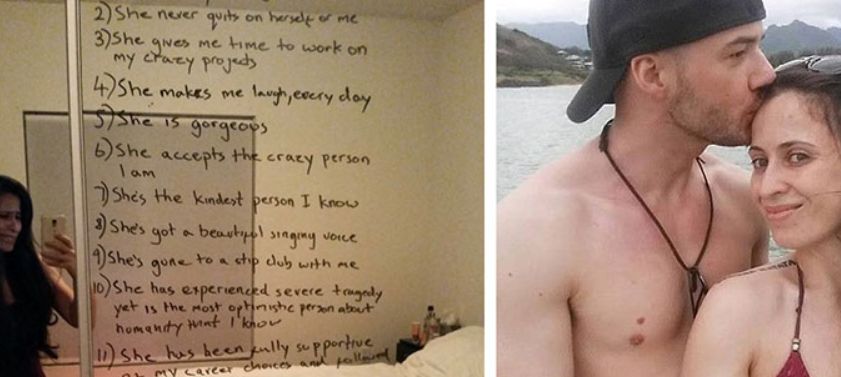 2) She never quits on herself or me
3) She gives me time to work on
my crazy projects
4) She makes me laugh, every day
5) She is gorgeous
6) She accepts the crazy person
I am
7) She's the kindest person I know
8) She's got a beautiful singing voice
9) She's gone to a strip club with me
10) She has experienced severe tragedy
yet is the most optimistic person about
humanity that I know
11) She has been fully supportive
my career choices and followed